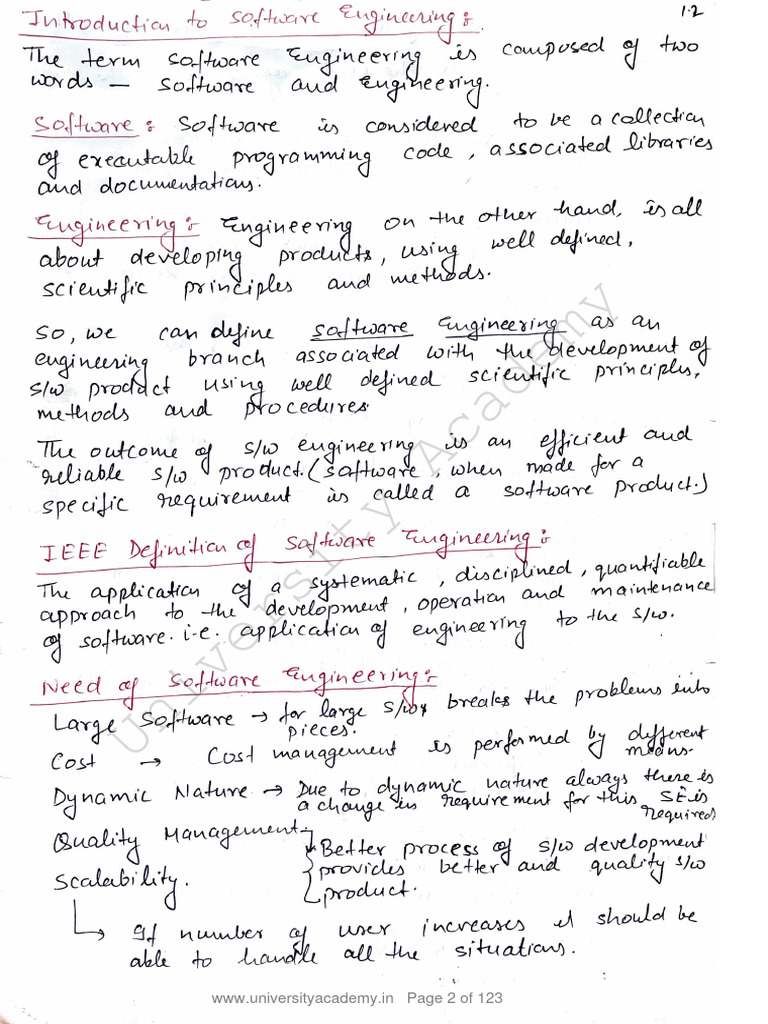 Introduction to Software Engineering:
1.2
The term software Engineering is composed of two
words — software and Engineering.
Software: Software is considered to be a collection
of executable programming code, associated libraries
and documentations.
Engineering: Engineering on the other hand, is all
about developing products, using well defined,
scientific principles and methods.
So, we can define software Engineering as an
engineering branch associated with the development of
s/w product using well defined scientific principles,
methods and procedures
The outcome of s/w engineering is an efficient and
reliable s/w product. (software, when made for a
specific requirement is called a software product.)
IEEE Definition of Software Engineering:
The application of a systematic, disciplined, quantifiable
approach to the development, operation and maintenance
of software. i.e. application of engineering to the s/w.
Need of Software Engineering:
Large Software → for large s/w breaks the problems into
pieces.
Cost → Cost management is performed by different
means.
Dynamic Nature → Due to dynamic nature always there is
a change in requirement for this SE is
required
Quality Management
Better process of s/w development
provides better and quality s/w
product.
Scalability.
→ If number of user increases it should be
able to handle all the situations.
University Academy
www.universityacademy.in Page 2 of 123